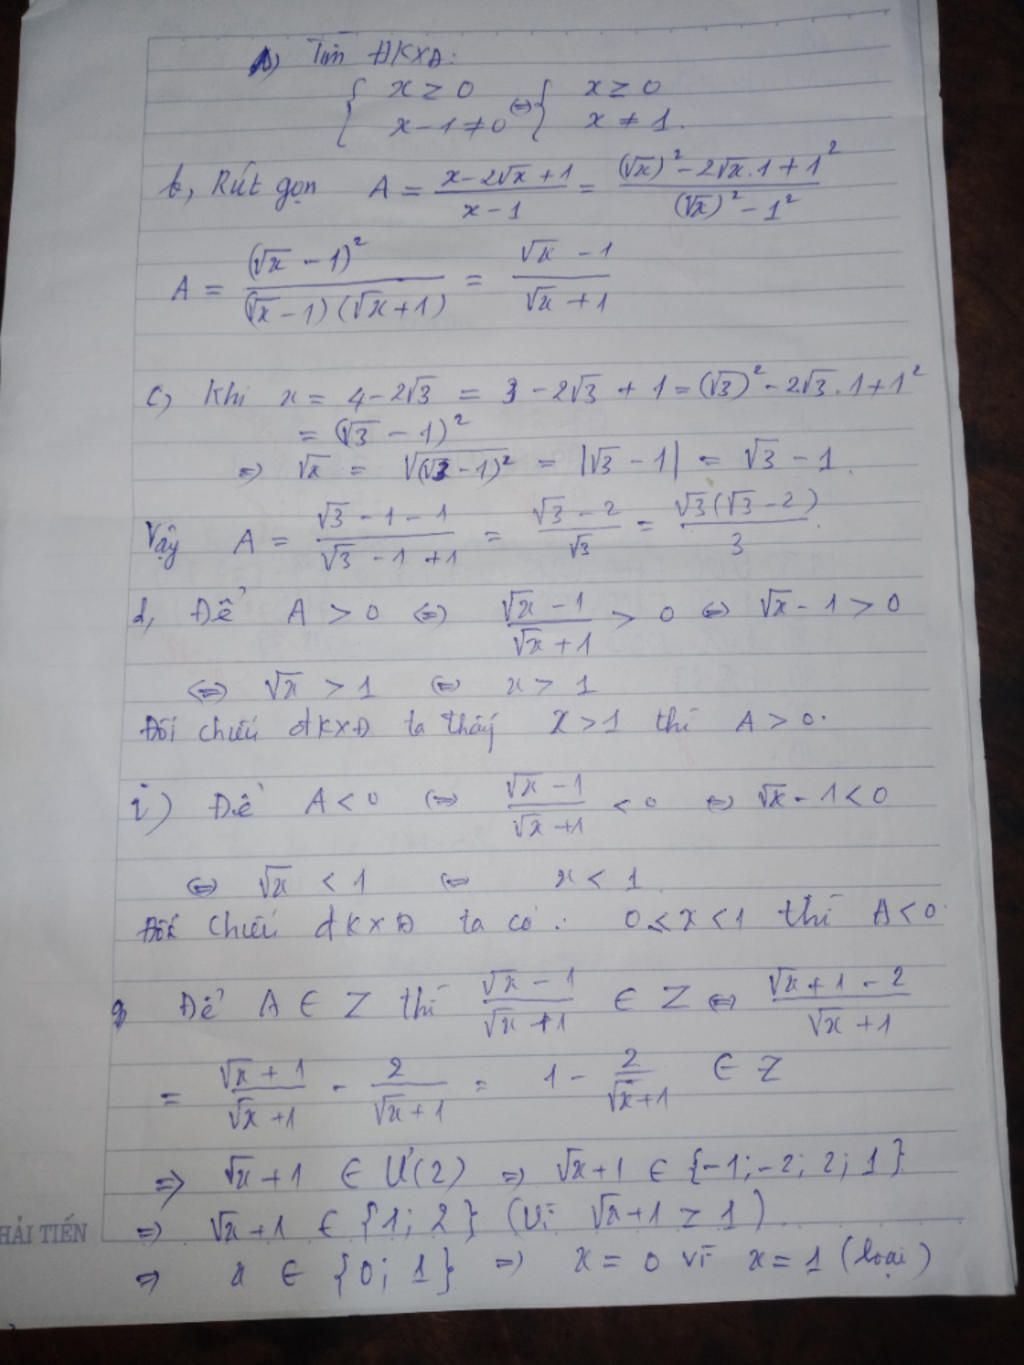 a) Tìm ĐKXĐ:
{ x ≥ 0 ⇔ { x ≥ 0
x - 1 ≠ 0 x ≠ 1.
b, Rút gọn A = (x - 2√x + 1)/(x - 1) = ((√x)² - 2√x.1 + 1²)/((√x)² - 1²)
A = (√x - 1)²/((√x - 1)(√x + 1)) = (√x - 1)/(√x + 1)
c, Khi x = 4 - 2√3 = 3 - 2√3 + 1 = (√3)² - 2√3.1 + 1²
= (√3 - 1)²
⇒ √x = √(√3 - 1)² = |√3 - 1| = √3 - 1.
Vậy A = (√3 - 1 - 1)/(√3 - 1 + 1) = (√3 - 2)/√3 = √3(√3 - 2)/3.
d, Để A > 0 ⇔ (√x - 1)/(√x + 1) > 0 ⇔ √x - 1 > 0
⇔ √x > 1 ⇔ x > 1
Đối chiếu đKXĐ ta thấy x > 1 thì A > 0.
i) Để A < 0 ⇔ (√x - 1)/(√x + 1) < 0 ⇔ √x - 1 < 0
⇔ √x < 1 ⇔ x < 1.
Đối chiếu đKXĐ ta có: 0 ≤ x < 1 thì A < 0.
Để A ∈ Z thì (√x - 1)/(√x + 1) ∈ Z ⇔ (√x + 1 - 2)/(√x + 1)
= (√x + 1)/(√x + 1) - 2/(√x + 1) = 1 - 2/(√x + 1) ∈ Z
⇒ √x + 1 ∈ Ư(2) ⇒ √x + 1 ∈ {-1; -2; 2; 1}
⇒ √x + 1 ∈ {1; 2} (vì √x + 1 ≥ 1)
⇒ x ∈ {0; 1} ⇒ x = 0 vì x = 1 (loại)
HẢI TIẾN